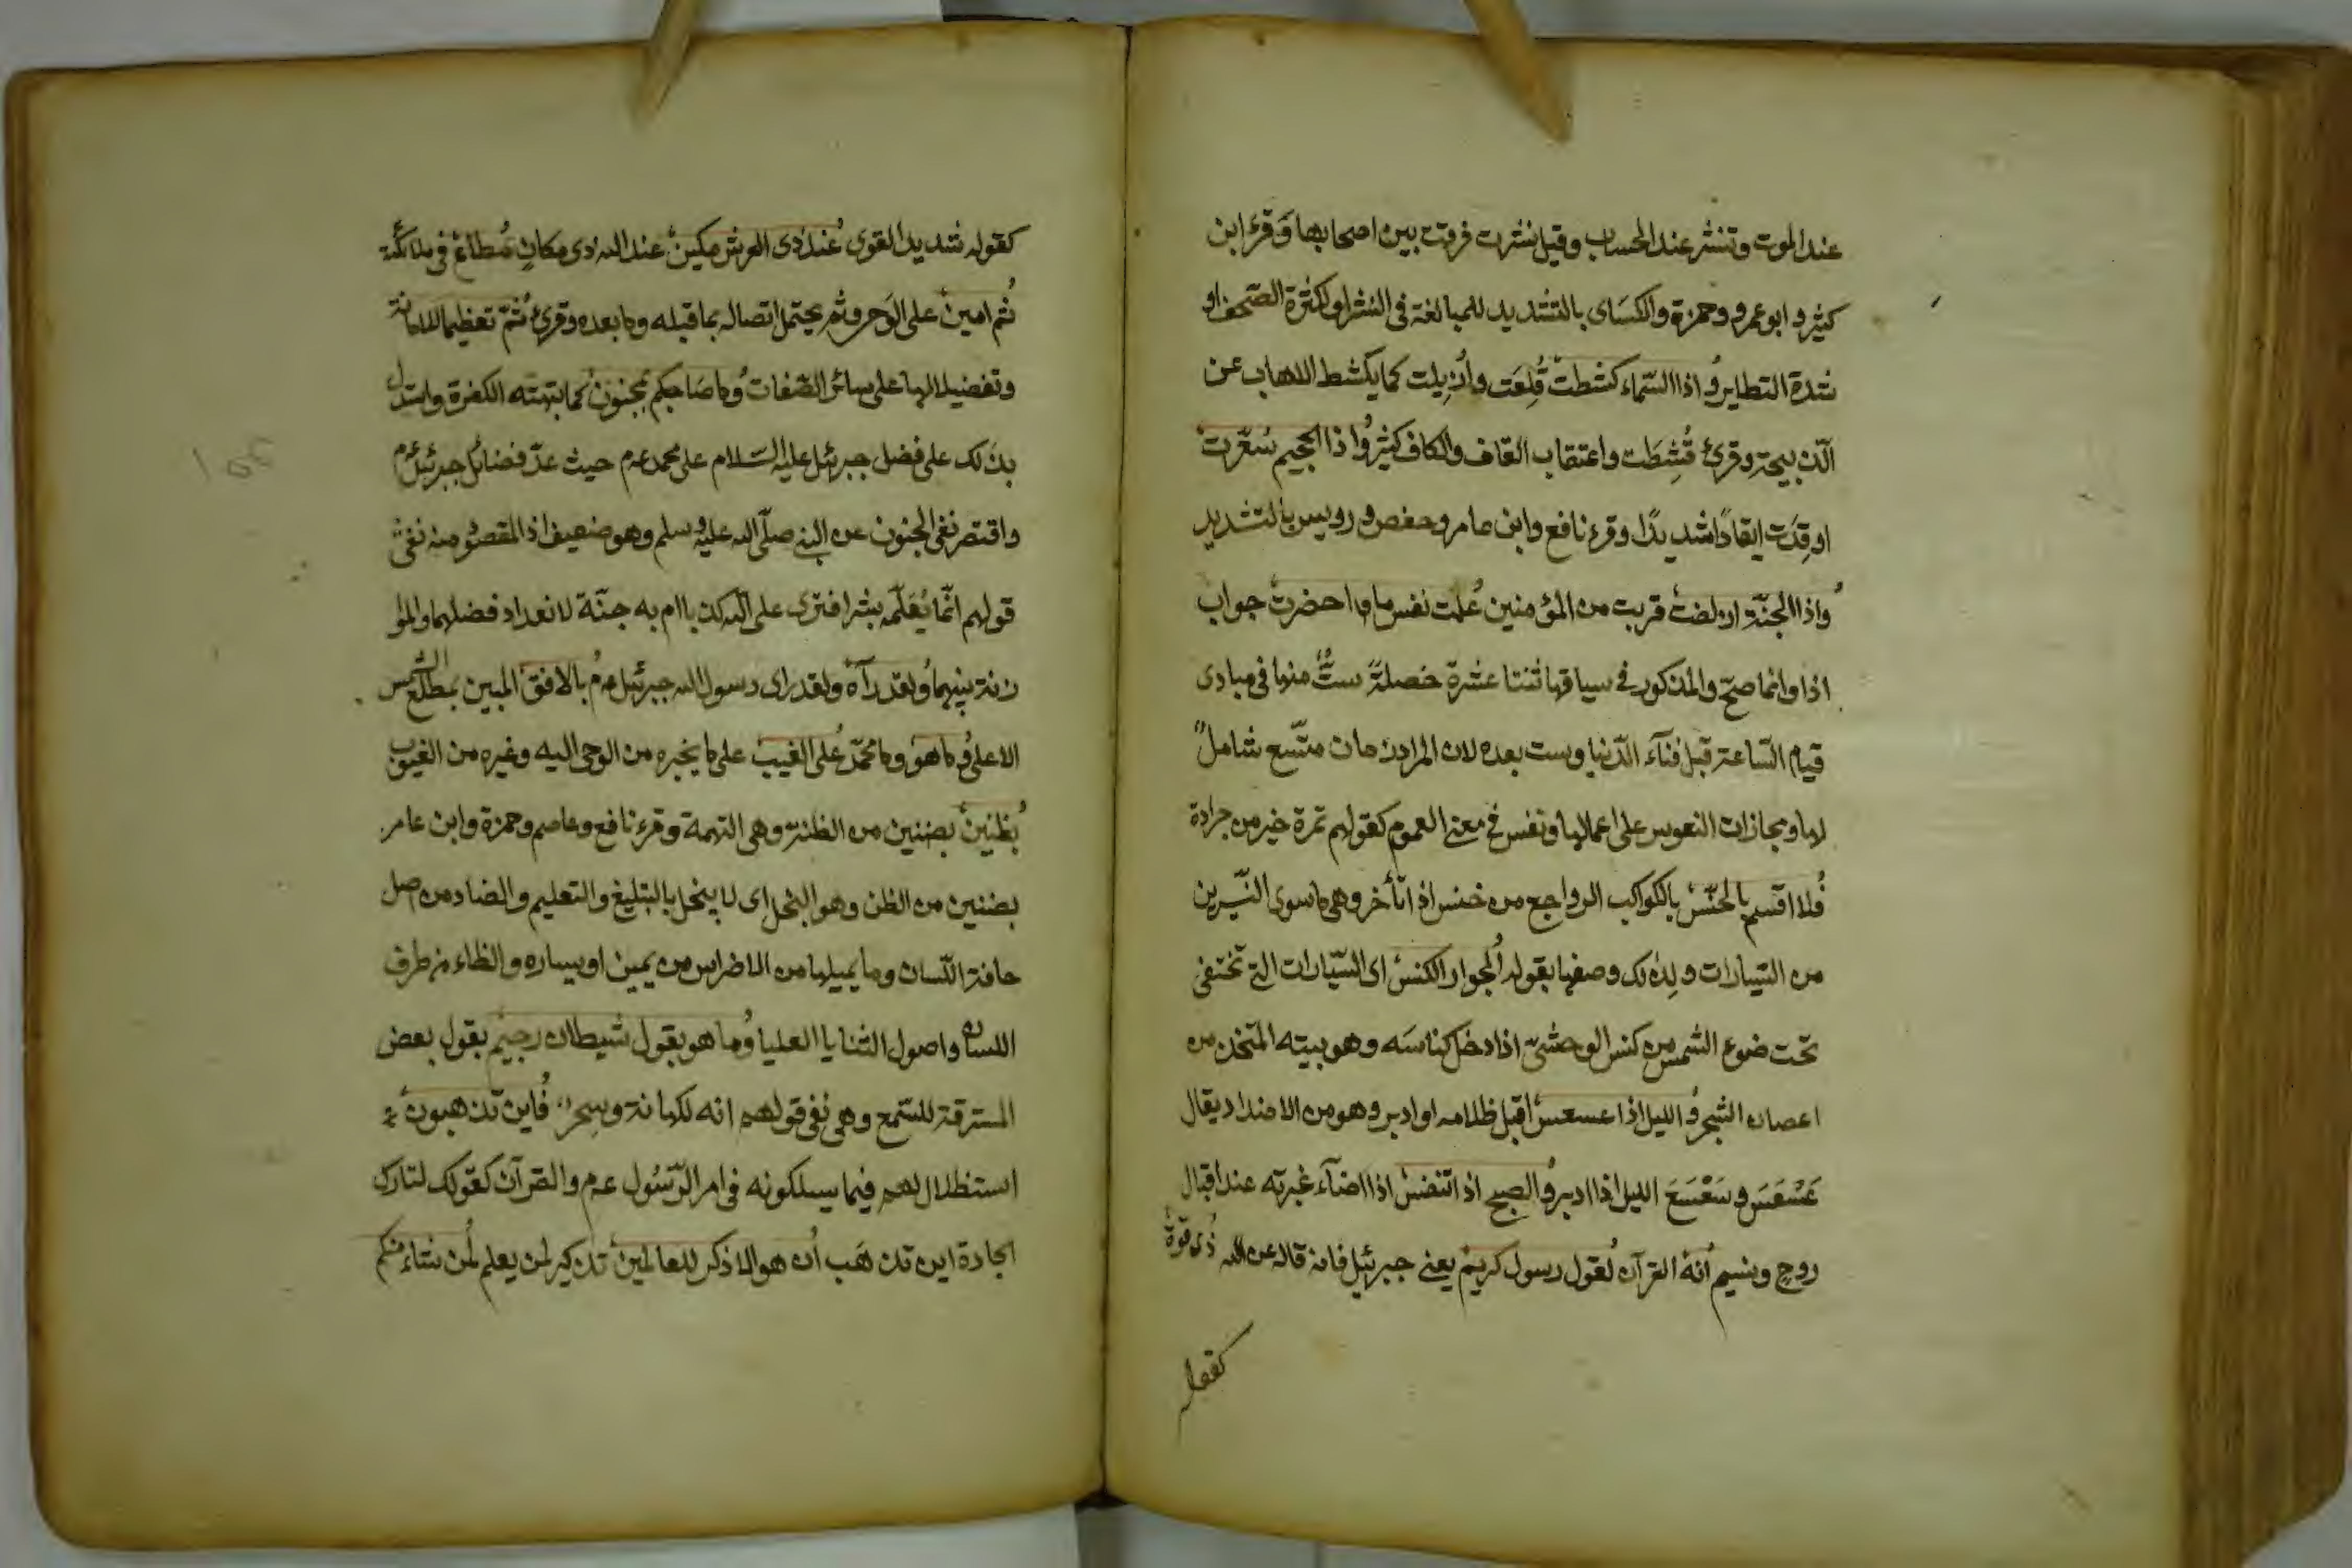 عند الموت وتنشر عند الحساب وقيل نشرت فرقت بين اصحابها وقرء ابن
كثير وابو عمرو وحمزة والكسَاى بالتشديد للمبالغة فى النشر او لكثرة الصّحف او
شدة التطاير وُاذا السّماء كشطت قُلِعَت واُزِيلت كما يكشط اللاهاب عن
الذبيحة وقرئ قُشِطَت واعتقاب القاف والكاف كثير وُاذا الجحيم سُعّرت
اوقِدَت ايقادًا شديدًا وقرء نافع وابن عامر وحفص ورويس بالتشديد
وُاذا الجنّة ازلفت قربت من المؤمنين عُلمت نفس ما احضرت جواب
اذا وانما صحّ والمذكور فى سياقها ثنتا عشرة خصلةً ستٌّ منها فى مبادى
قيام السّاعة قبل فنآء الدّنيا وست بعده لان المراد زمان متّسع شاملٌ
لها ومجازات النفوس على اعمالها ونفس فى معنى العموم كقولهم تمرة خير من جرادة
فُلا اقسم بالخنّس بالكواكب الرواجع من خنس اذا تأخر وهى ما سوى النّيّرين
من السّيارات ولذلك وصفها بقوله اُلجوار الكنس اى السّيّارات التى تختفى
تحت ضوء الشمس من كنس الوحشىّ اذا دخل كناسَه وهو بيته المتّخذ من
اعصان الشجر وُالليل اذا عسعس اقبل ظلامه او ادبر وهو من الاضداد يقال
عَسْعَسَ وسَعْسَعَ الليل اذا ادبر وُالصبح اذا تنفس اذا اضآء غبرته عند اقبال
روح ونسيم اُنه القرآن لُقول رسول كريم يعنى جبرئيل فانه قاله عن الله ذُى قوة
كقوله
كقوله شديد القوى عُند ذى العرش مكين عند الله ذى مكانٍ مُطاع فى ملائكته
ثُم امين على الوَحى وثم يحتمل اتصاله بما قبله وما بعده وقرئ ثُمّ تعظيما للامانة
وتفضيلا لها على سائر الصّفات وُما صَاحبكم بمجنون كما بهتته الكفرة واستدل
بذلك على فضل جبرئيل عليه السّلام على محمد عم حيث عدّ فضائل جبرئيل عم
واقتصر نفى الجنون عن النبى صلّى الله عليه وسلم وهو ضعيف اذ المقصود منه نفى
قولهم انّما يُعَلّمه بشر افترى على الله كذبا ام به جنّة لا تعداد فضلهما والموا
زنة بينهما وُلقد رآه ولقد راى رسول الله جبرئيل عم بُالافق المبين بمطلع الشمس
الاعلى وُما هو وما محمّد عُلى الغيب على ما يخبره من الوحى اليه وغيره من الغيوب
بُظنين بضنين من الظنة وهى التهمة وقرء نافع وعاصم وحمزة وابن عامر
بضنين من الظن وهو البخل اى لا يبخل بالتبليغ والتعليم والضاد من اصل
حافة اللّسان وما يميلها من الاضراس من يمين او يساره والظاء من طرف
اللسان واصول الثنايا العليا وُما هو بقول شيطان رجيم بقول بعض
المسترقة للسّمع وهى نفى قولهم انه لكهانة وسِحرٌ فُاين تذهبون
استظلال لهم فيما يسلكونه فى امر الرّسُول عم والقرآن كقولك لتارك
الجادة اين تذهَب اُن هو الا ذكر للعالمين تذكير لمن يعلم لُمن شاء منكم